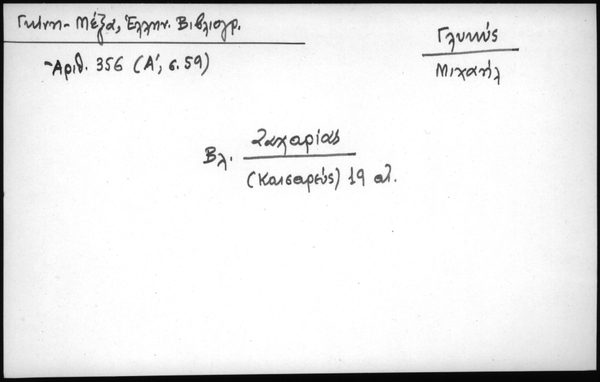 Γκίνη - Μέξα, Ἑλλην. Βιβλιογρ.
- Ἀριθ. 356 (Α΄, σ. 59)
Γλυκύς
Μιχαήλ
Βλ. Ζαχαρίας
(Καισαρεύς) 19 αἰ.